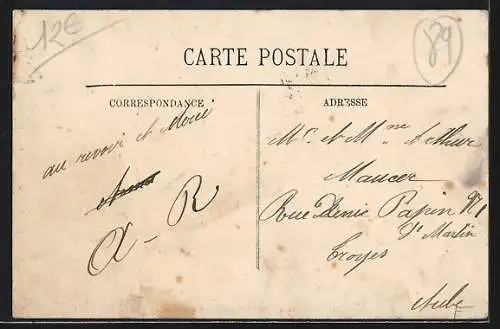 12€
89
CARTE POSTALE
CORRESPONDANCE
ADRESSE
au revoir et
A - R
Mr. et Mme Arthur
Maucer
Rue Denis Papin N1
St Martin
Troyes
Aube